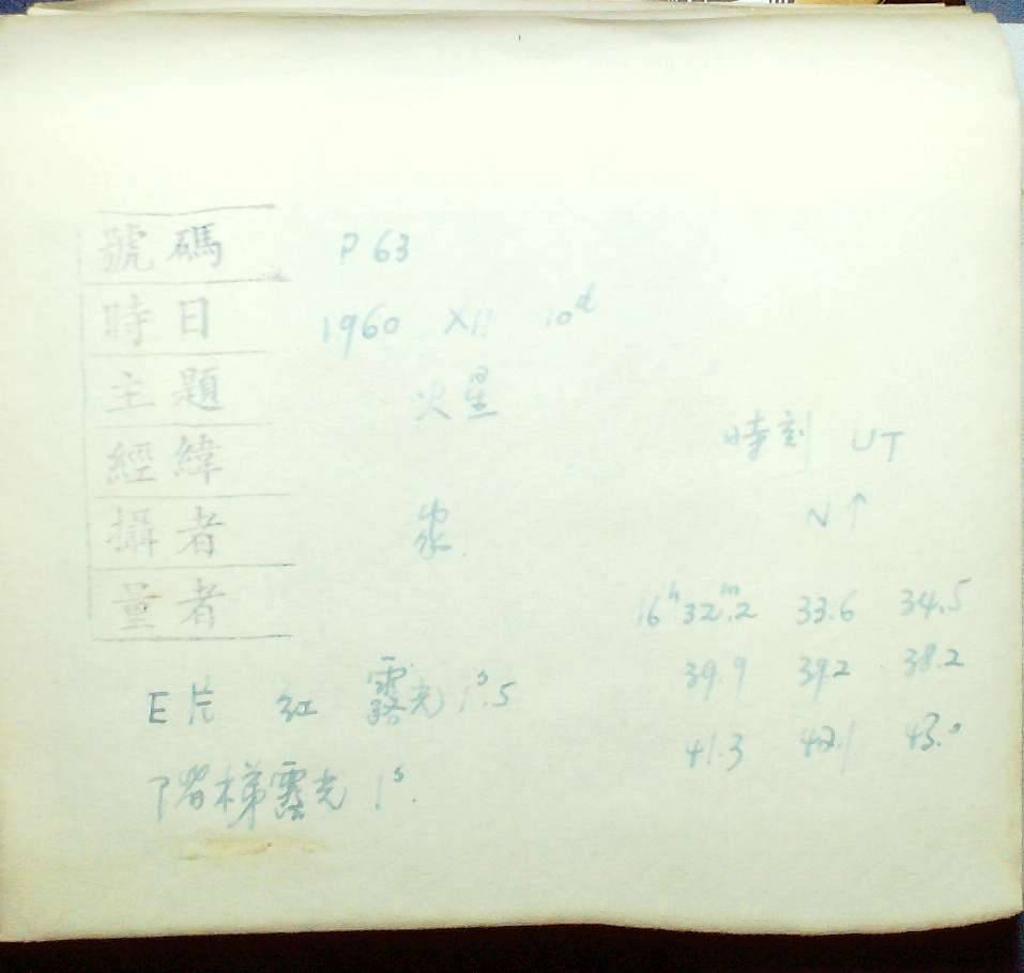 號碼 P 63
時日 1960 XII 10d
主題 火星
經緯
攝者
量者
時刻 UT
N↑
16h 32m.2 33.6 34.5
39.9 39.2 38.2
41.3 42.1 43.0
E片 紅 露光 1s.5
階梯露光 1s.